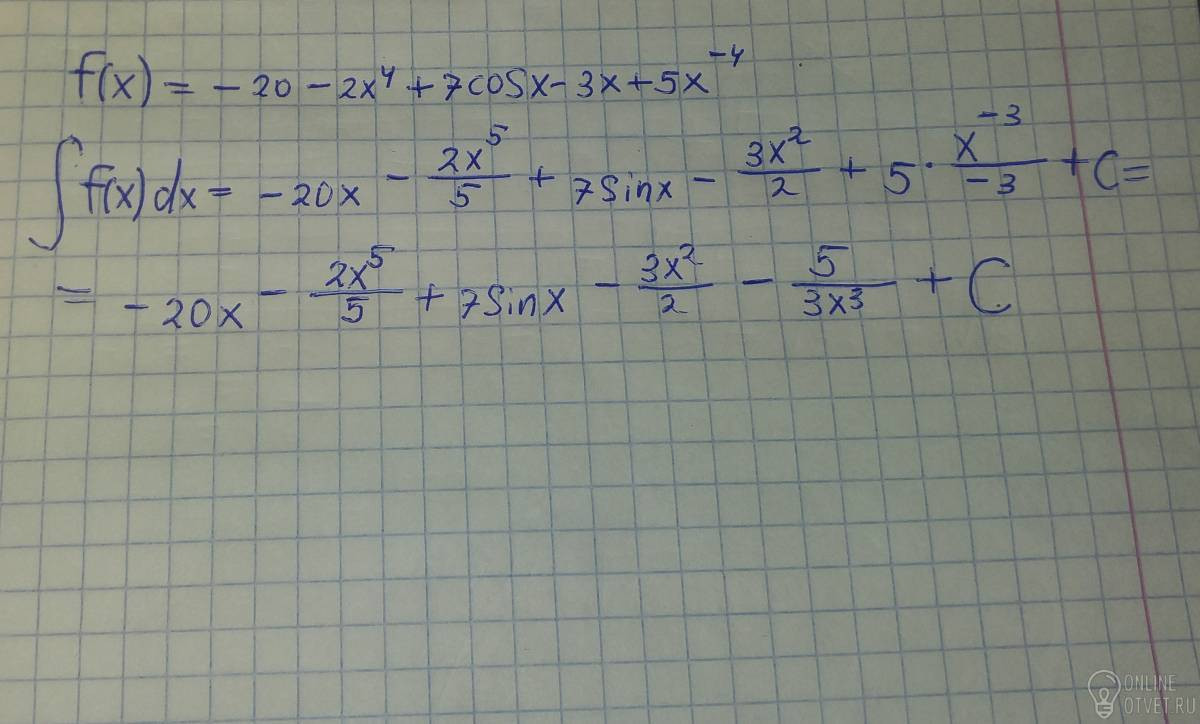 f(x) = - 20 - 2x⁴ + 7cosx - 3x + 5x⁻⁴
∫ f(x) dx = - 20x - 2x⁵/5 + 7sinx - 3x²/2 + 5 · x⁻³/-3 + C =
= - 20x - 2x⁵/5 + 7sinx - 3x²/2 - 5/3x³ + C
ONLINE
OTVET.RU